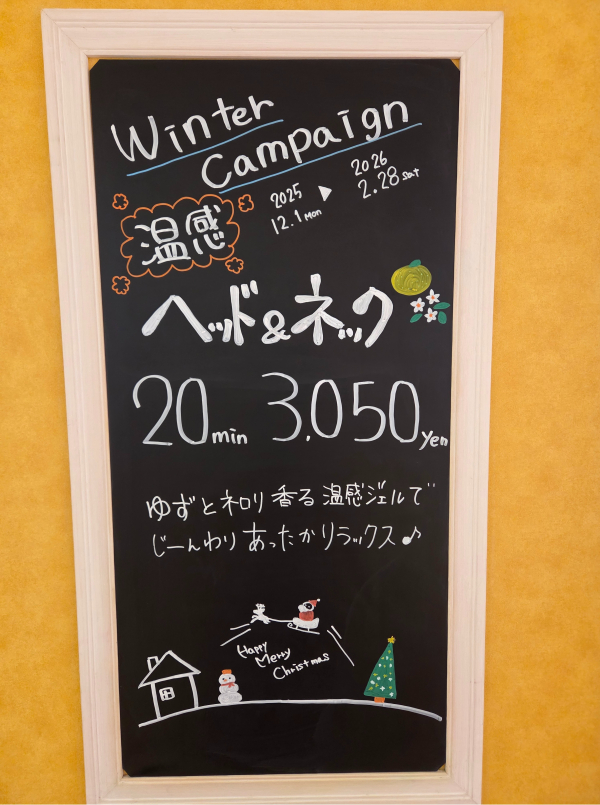 Winter
Campaign
2025
12.1 Mon
▶
2026
2.28 Sat
温感
ヘッド&ネック
20min 3,050yen
ゆずとネロリ香る温感ジェルで
じーんわりあったかリラックス♪
Happy
Merry
Christmas